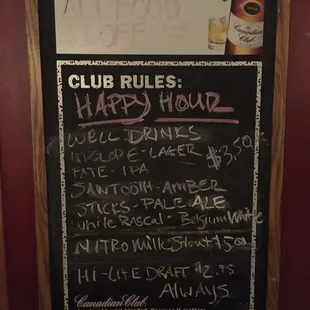 ALL FOOD
OFF
Canadian Club
CLUB RULES:
HAPPY HOUR
WELL DRINKS
UPSLOPE - LAGER $3.50
FATE - IPA
SAWTOOTH - AMBER
STICKS - PALE ALE
White Rascal - Belgium White
NITRO Milk Stout $5.00
HI-LITE DRAFT $2.75
ALWAYS
Canadian Club